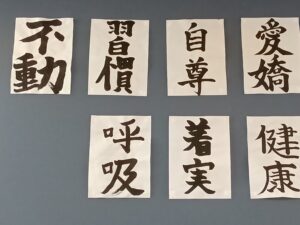 不動
習慣
自尊
愛嬌
呼吸
着実
健康